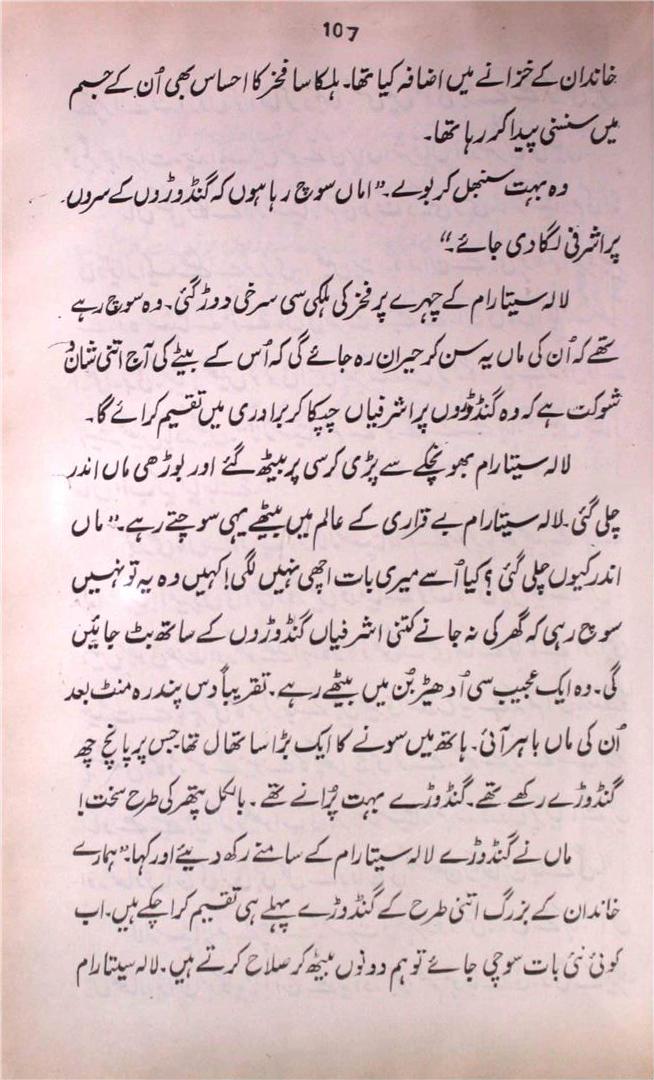 107
خاندان کے خزانے میں اضافہ کیا تھا۔ ہلکا سا فخر کا احساس بھی اُن کے جسم
میں سنسنی پیدا کر رہا تھا۔
وہ بہت سنبھل کر بولے۔ “اماں سوچ رہا ہوں کہ گنڈوڑوں کے سروں
پر اشرفی لگا دی جائے۔”
لالہ سیتا رام کے چہرے پر فخر کی ہلکی سی سرخی دوڑ گئی۔ وہ سوچ رہے
تھے کہ اُن کی ماں یہ سن کر حیران رہ جائے گی کہ اُس کے بیٹے کی آج اتنی شان و
شوکت ہے کہ وہ گنڈوڑوں پر اشرفیاں چپکا کر برادری میں تقسیم کرائے گا۔
لالہ سیتا رام بھونچکے سے پڑی کرسی پر بیٹھ گئے اور بوڑھی ماں اندر
چلی گئی۔ لالہ سیتا رام بے قراری کے عالم میں بیٹھے یہی سوچتے رہے۔ “ماں
اندر کیوں چلی گئی؟ کیا اُسے میری بات اچھی نہیں لگی! کہیں وہ یہ تو نہیں
سوچ رہی کہ گھر کی نہ جانے کتنی اشرفیاں گنڈوڑوں کے ساتھ بٹ جائیں
گی۔ وہ ایک عجیب سی اُدھیڑ بُن میں بیٹھے رہے۔ تقریباً دس پندرہ منٹ بعد
اُن کی ماں باہر آئی۔ ہاتھ میں سونے کا ایک بڑا سا تھال تھا جس پر پانچ چھ
گنڈوڑے رکھے تھے۔ گنڈوڑے بہت پُرانے تھے۔ بالکل پتھر کی طرح سخت!
ماں نے گنڈوڑے لالہ سیتا رام کے سامنے رکھ دیئے اور کہا۔ “ہمارے
خاندان کے بزرگ اتنی طرح کے گنڈوڑے پہلے ہی تقسیم کرا چکے ہیں۔ اب
کوئی نئی بات سوچی جائے تو ہم دونوں بیٹھ کر صلاح کرتے ہیں۔ لالہ سیتا رام